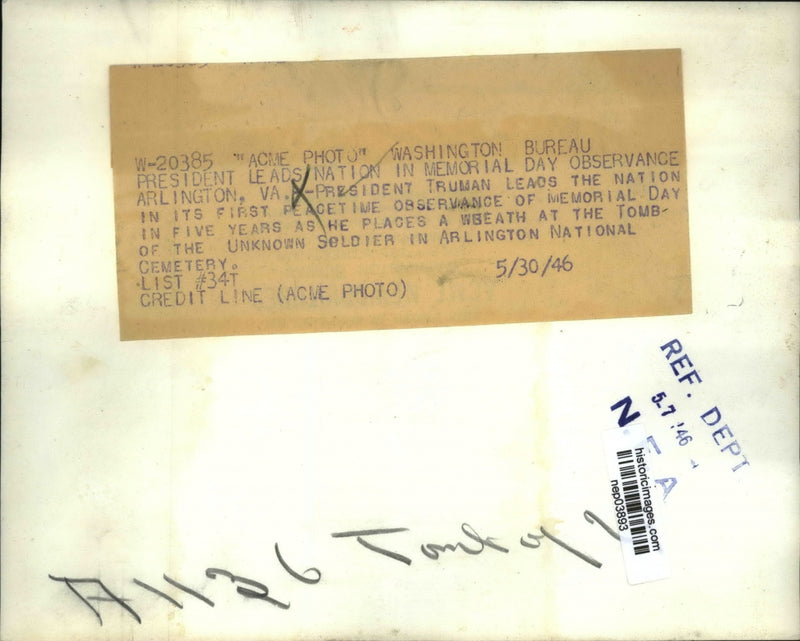 W-20385 "ACME PHOTO" WASHINGTON BUREAU
PRESIDENT LEADS NATION IN MEMORIAL DAY OBSERVANCE
ARLINGTON, VA.--PRESIDENT TRUMAN LEADS THE NATION
IN ITS FIRST PEACETIME OBSERVANCE OF MEMORIAL DAY
IN FIVE YEARS AS HE PLACES A WREATH AT THE TOMB
OF THE UNKNOWN SOLDIER IN ARLINGTON NATIONAL
CEMETERY.
LIST #34T
CREDIT LINE (ACME PHOTO)
5/30/46
REF. DEPT
5-7 '46
N E A
historicimages.com
nep03893
Tomb of